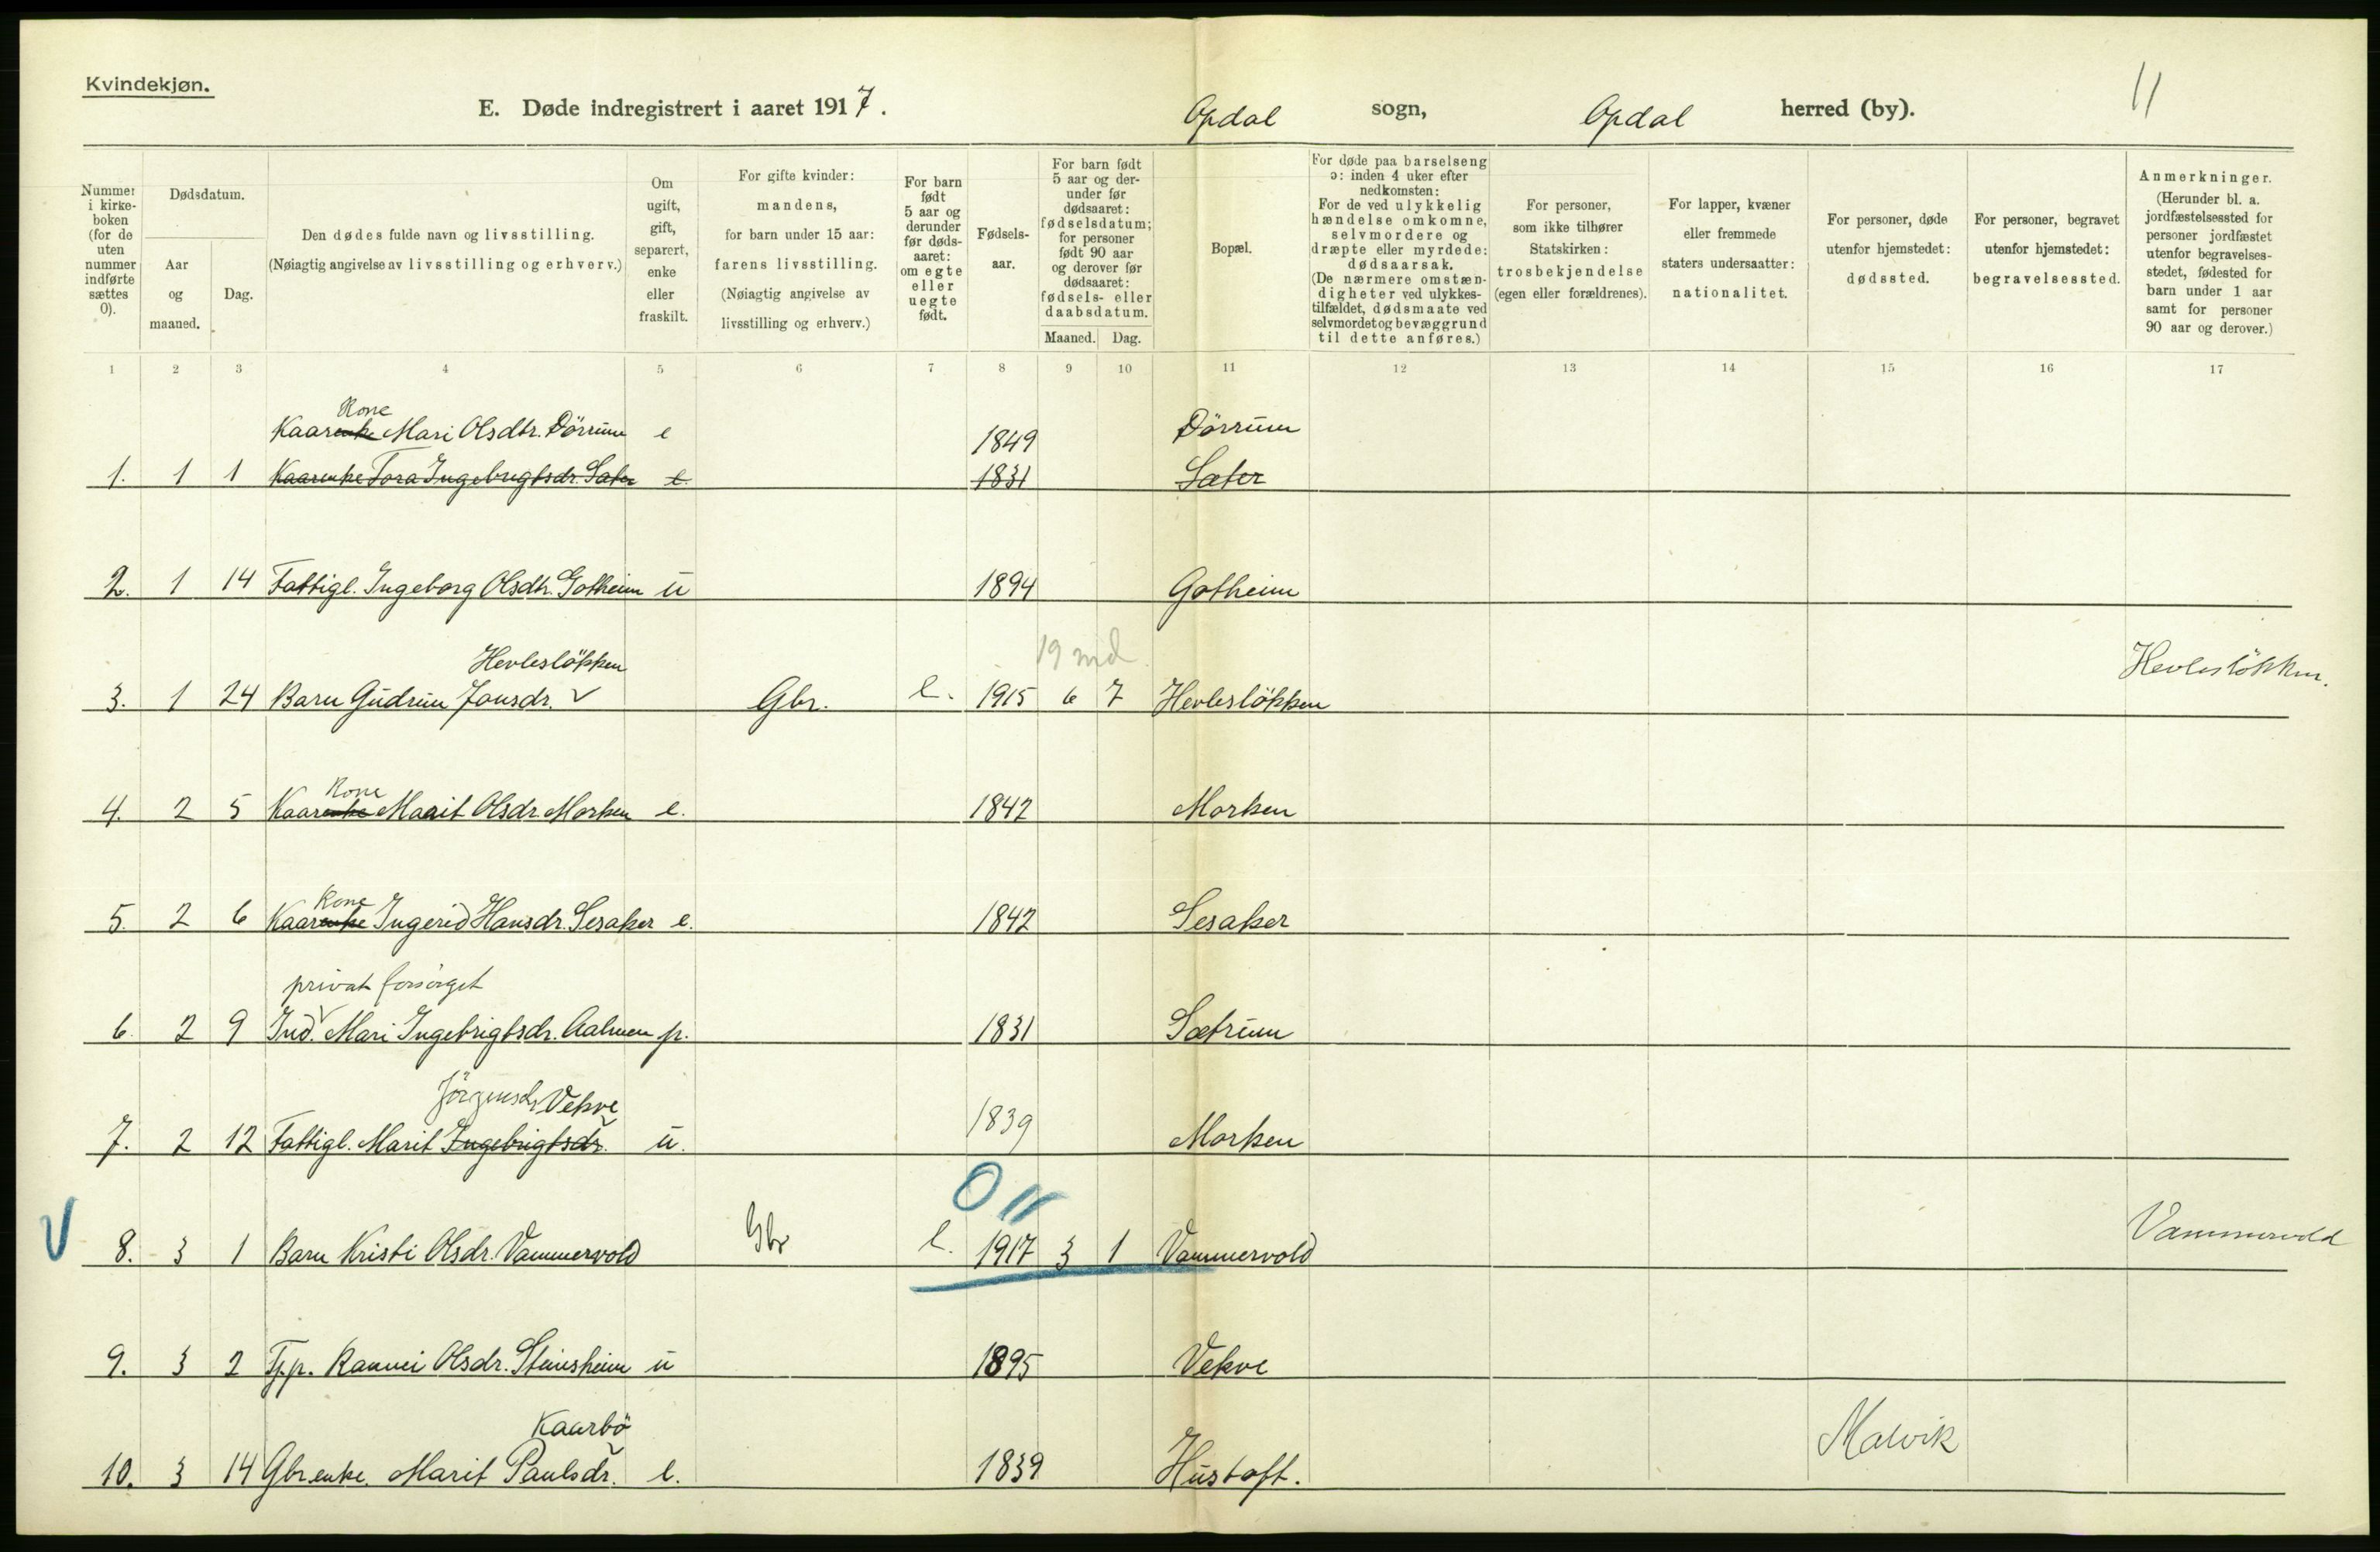 Kvindekjøn.
E. Døde indregistrert i aaret 1917.
Opdal sogn, Opdal herred (by).
11
Nummer i kirkeboken (for de uten nummer indførte sættes 0).
Dødsdatum.
Aar og maaned.
Dag.
Den dødes fulde navn og livsstilling.
(Nøiagtig angivelse av livsstilling og erhverv.)
Om ugift, gift, separert, enke eller fraskilt.
For gifte kvinder: mandens, for barn under 15 aar: farens livsstilling.
(Nøiagtig angivelse av livsstilling og erhverv.)
For barn født 5 aar og derunder før dødsaaret: om egte eller uegte født.
Fødselsaar.
For barn født 5 aar og derunder før dødsaaret: fødselsdatum; for personer født 90 aar og derover før dødsaaret: fødsels- eller daabsdatum.
Maaned. Dag.
Bopæl.
For døde paa barselseng ɔ: inden 4 uker efter nedkomsten:
For de ved ulykkelig hændelse omkomne, selvmordere og dræpte eller myrdede: dødsaarsak.
(De nærmere omstændigheter ved ulykkestilfældet, dødsmaate ved selvmordet og bevæggrund til dette anføres.)
For personer, som ikke tilhører Statskirken: trosbekjendelse (egen eller forældrenes).
For lapper, kvæner eller fremmede staters undersaatter: nationalitet.
For personer, døde utenfor hjemstedet: dødssted.
For personer, begravet utenfor hjemstedet: begravelsessted.
Anmerkninger.
(Herunder bl. a. jordfæstelsessted for personer jordfæstet utenfor begravelsesstedet, fødested for barn under 1 aar samt for personer 90 aar og derover.)
1 2 3 4 5 6 7 8 9 10 11 12 13 14 15 16 17
Kone
Kaarenke Mari Olsdtr. Dörrum e 1849 Dörrum
1. 1 1 Kaarenke Tora Ingebrigtsdr. Sæter e. 1831 Sæter
2. 1 14 Fattigl. Ingeborg Olsdtr. Gotheim u 1894 Gotheim
Hevlesløkken 19 md. Hevlesløkken.
3. 1 24 Barn Gudrun Jonsdr. Gbr. e. 1915 6 7 Hevlesløkken
Kone
4. 2 5 Kaarenke Marit Olsdr. Morken e. 1842 Morken
Kone
5. 2 6 Kaarenke Ingerid Hansdr. Sesaker e. 1842 Sesaker
privat forsörget
6. 2 9 Ind. Mari Ingebrigtsdr. Aalmen p. 1831 Sætrum
Jörgensdr Vekve
7. 2 12 Fattigl. Marit Ingebrigtsdr. u. 1839 Morken
0 11
V 8. 3 1 Barn Kristi Olsdr. Vammervold Gbr e. 1917 3 1 Vammervold Vammervold
9. 3 2 Tjp. Rannei Olsdr. Steinsheim u 1895 Vekve
Kaarbö Malvik
10. 3 14 Gbrenke. Marit Paulsdr. e. 1839 Hustoft.